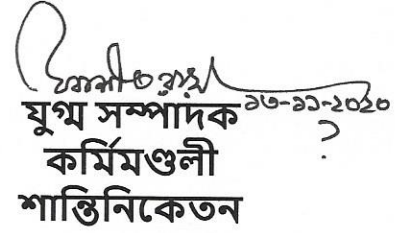 ১৩-১১-২০২০
যুগ্ম সম্পাদক
?
কর্মিমণ্ডলী
শান্তিনিকেতন